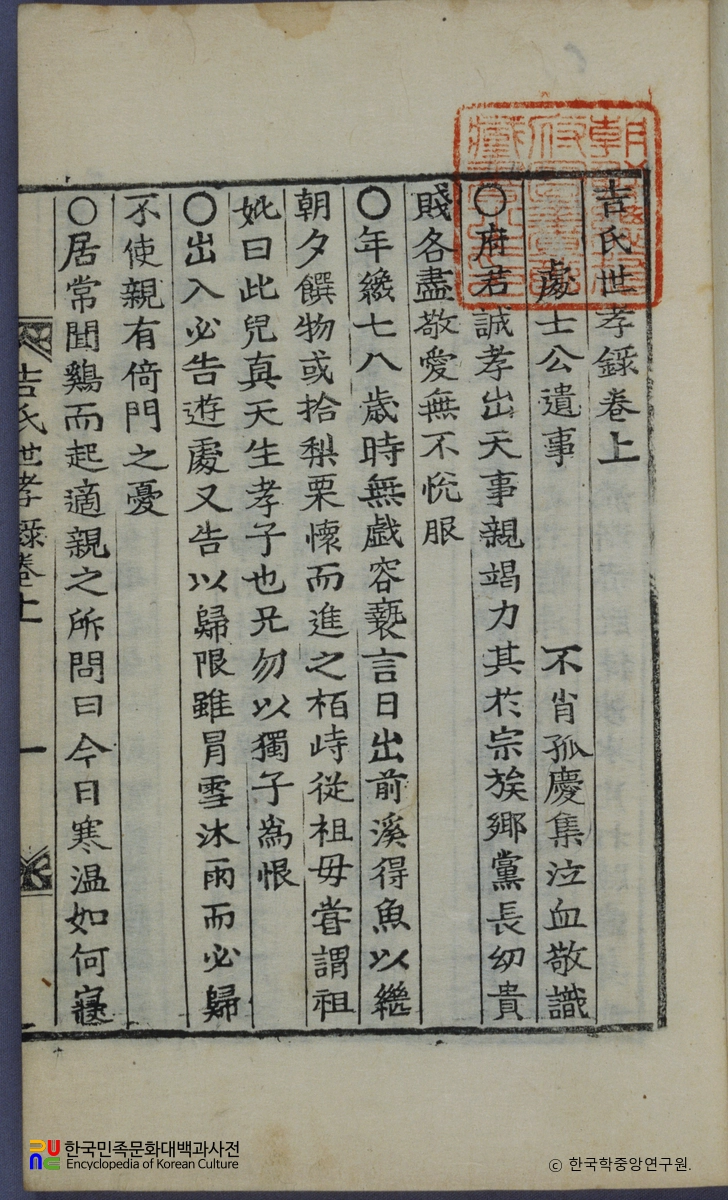 吉氏世孝錄卷上
處士公遺事 不肖孤慶集泣血敬識
○府君誠孝出天事親竭力其於宗族鄉黨長幼貴
賤各盡敬愛無不悅服
○年纔七八歲時無戱容褻言日出前溪得魚以繼
朝夕饌物或拾梨栗懷而進之栢峙從祖毋甞謂祖
妣曰此兒真天生孝子也兄勿以獨子爲恨
○出入必告遊處又告以歸限雖冐雪沐雨而必歸
不使親有倚門之憂
○居常聞鷄而起適親之所問曰今日寒温如何寢
吉氏世孝錄卷上 一
한국민족문화대백과사전
Encyclopedia of Korean Culture
© 한국학중앙연구원.